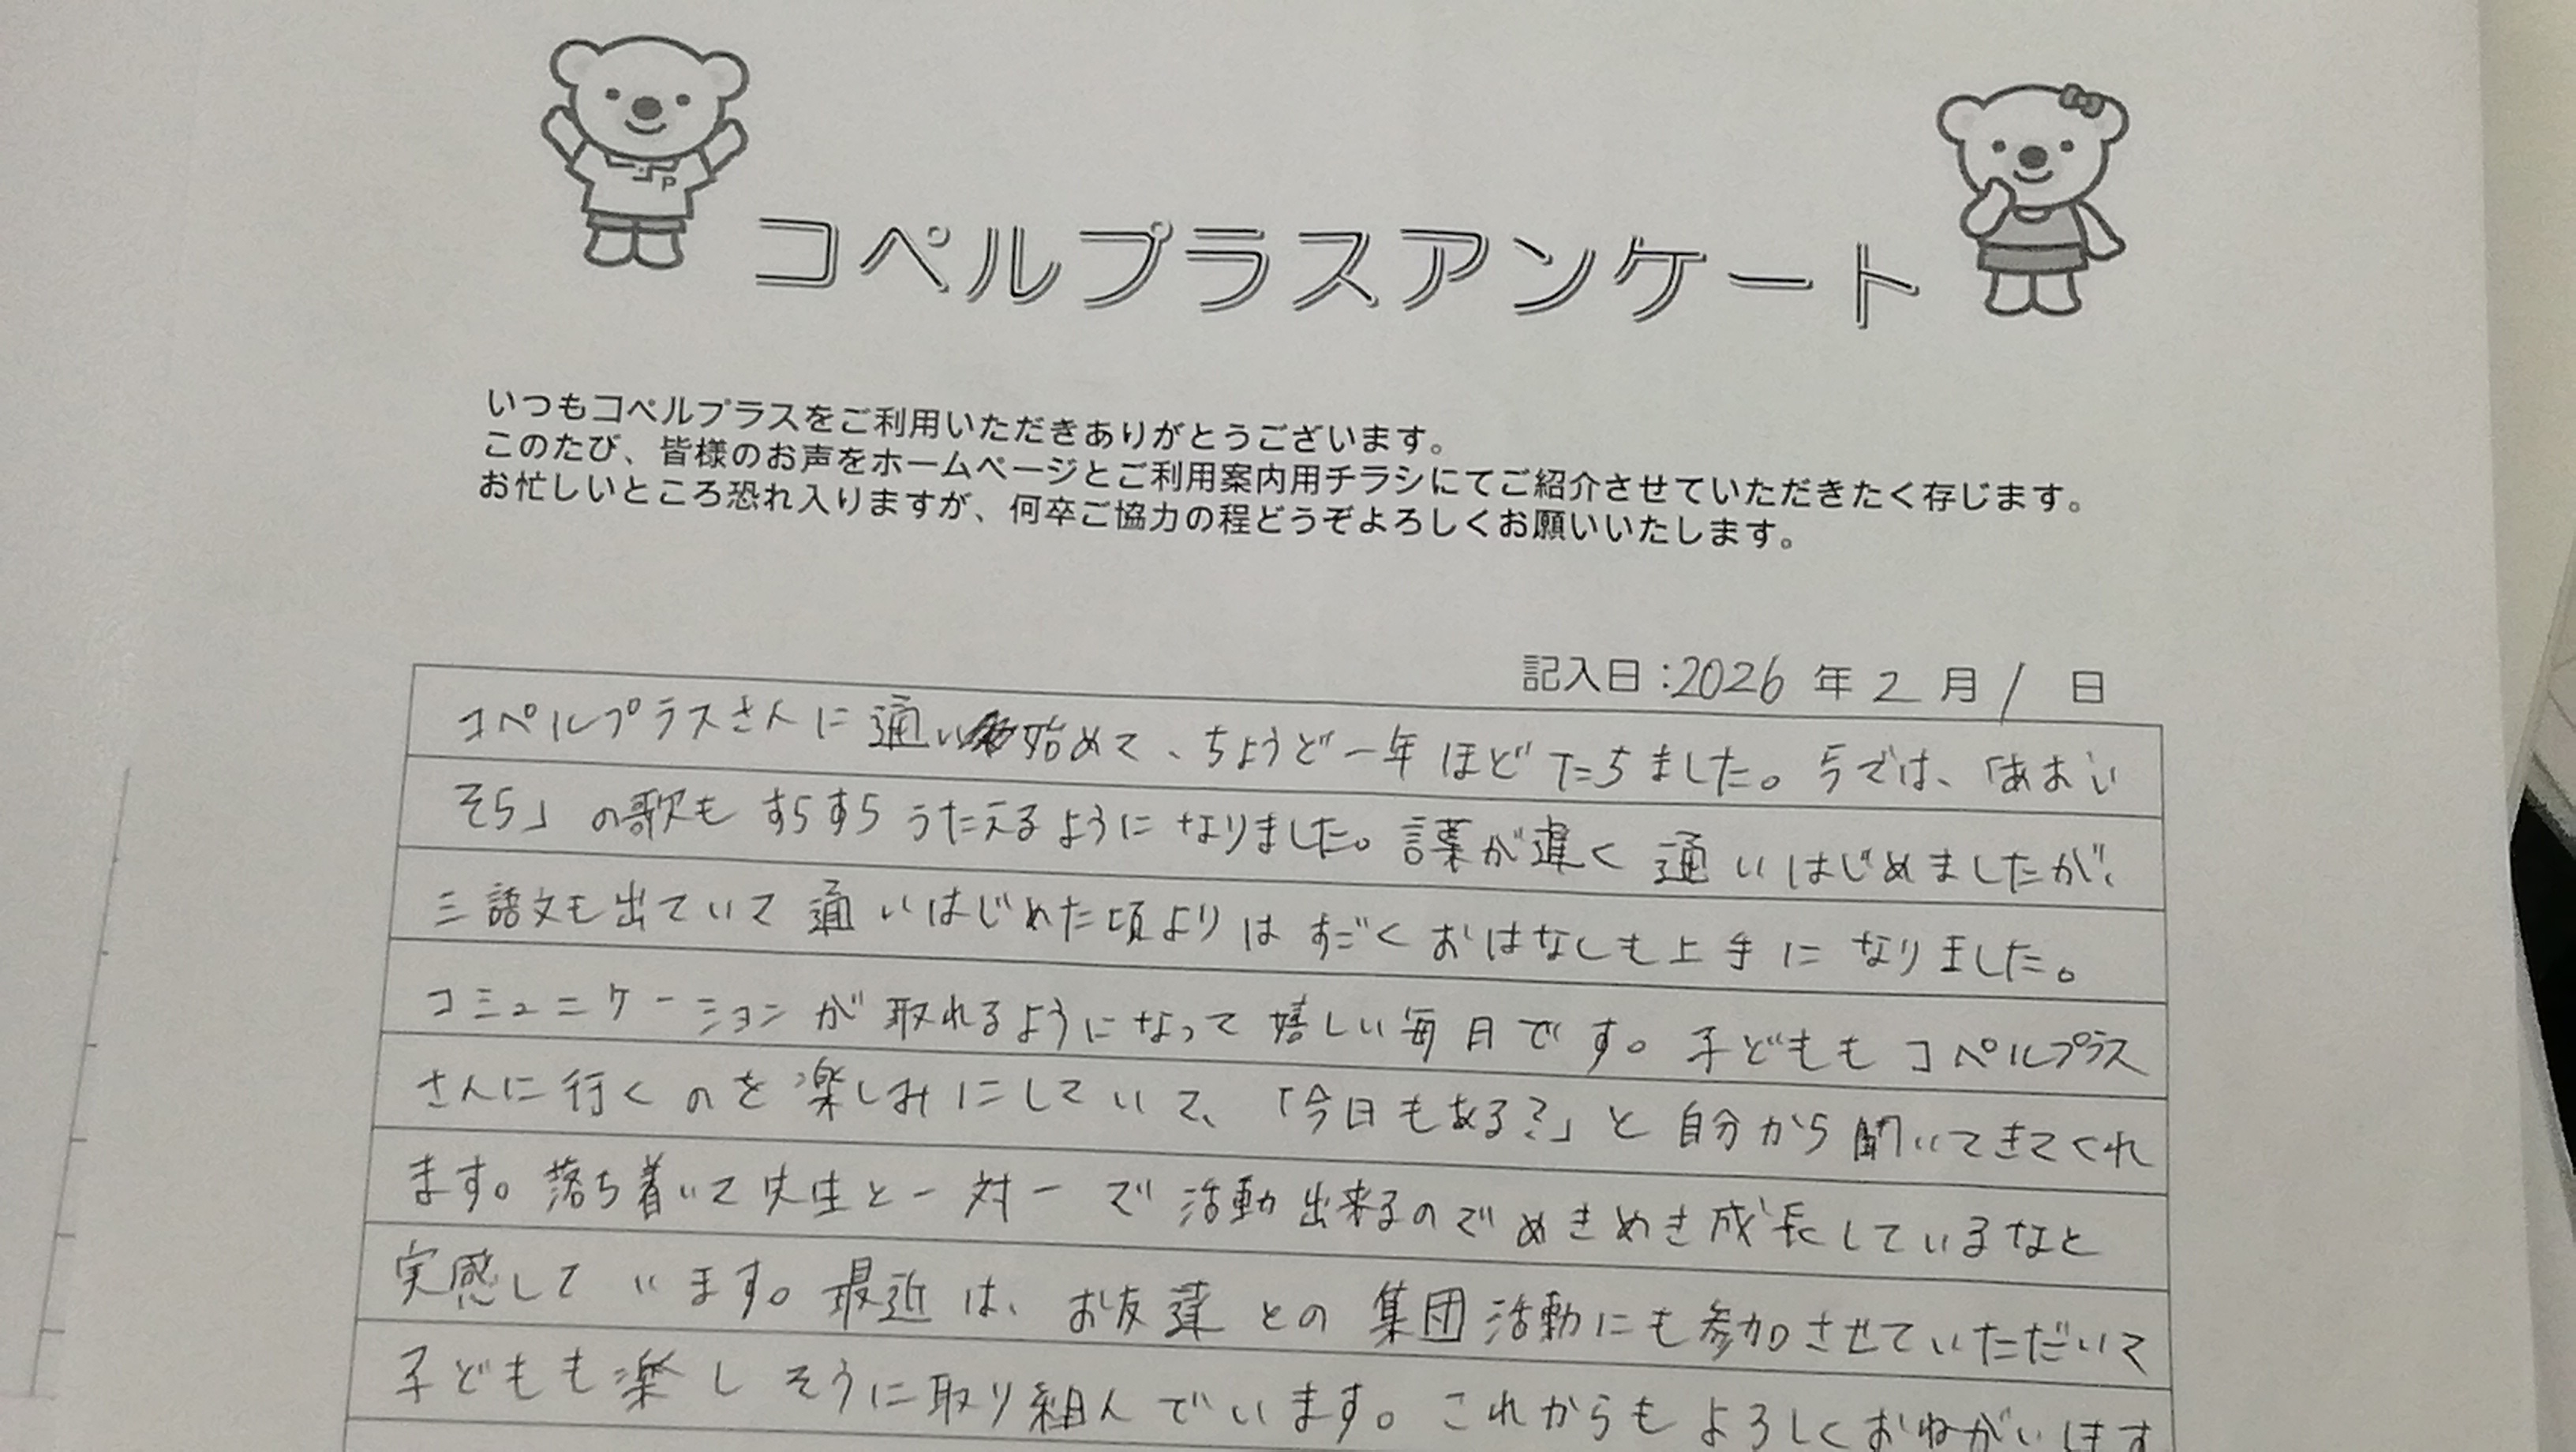 P
コペルプラスアンケート
いつもコペルプラスをご利用いただきありがとうございます。
このたび、皆様のお声をホームページとご利用案内用チラシにてご紹介させていただきたく存じます。
お忙しいところ恐れ入りますが、何卒ご協力の程どうぞよろしくお願いいたします。
記入日：2026年2月1日
コペルプラスさんに通い始めて、ちょうど一年ほどたちました。今では、「あおい
そら」の歌もすらすらうたえるようになりました。言葉が遅く通いはじめましたが、
三語文も出ていて通いはじめた頃よりはすごくおはなしも上手になりました。
コミュニケーションが取れるようになって嬉しい毎日です。子どももコペルプラス
さんに行くのを楽しみにしていて、「今日もある？」と自分から聞いてきてくれ
ます。落ち着いて先生と一対一で活動出来るのでめきめき成長しているなと
実感しています。最近は、お友達との集団活動にも参加させていただいて
子どもも楽しそうに取り組んでいます。これからもよろしくおねがいします